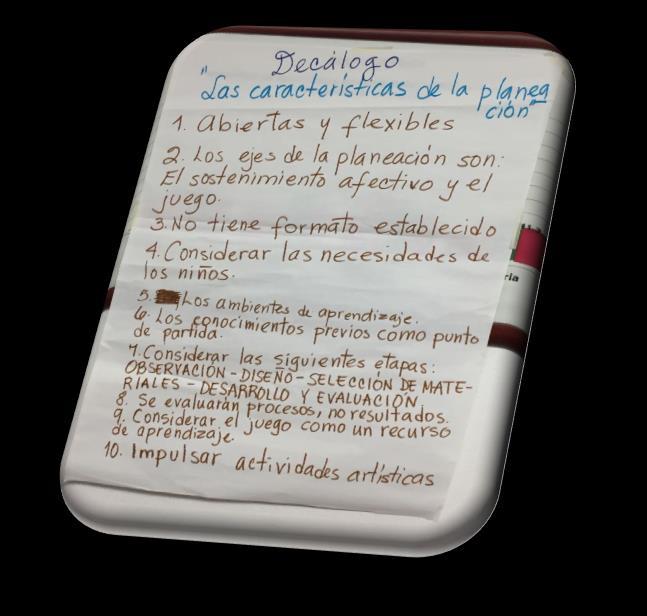 Decálogo
"Las características de la planea
ción"
1. Abiertas y flexibles
2. Los ejes de la planeación son:
El sostenimiento afectivo y el
juego.
3. No tiene formato establecido
4. Considerar las necesidades de
los niños.
5. Los ambientes de aprendizaje.
6. Los conocimientos previos como punto
de partida.
7. Considerar las siguientes etapas:
OBSERVACIÓN - DISEÑO - SELECCIÓN DE MATE-
RIALES - DESARROLLO Y EVALUACIÓN
8. Se evaluarán procesos, no resultados.
9. Considerar el juego como un recurso
de aprendizaje.
10. Impulsar actividades artísticas